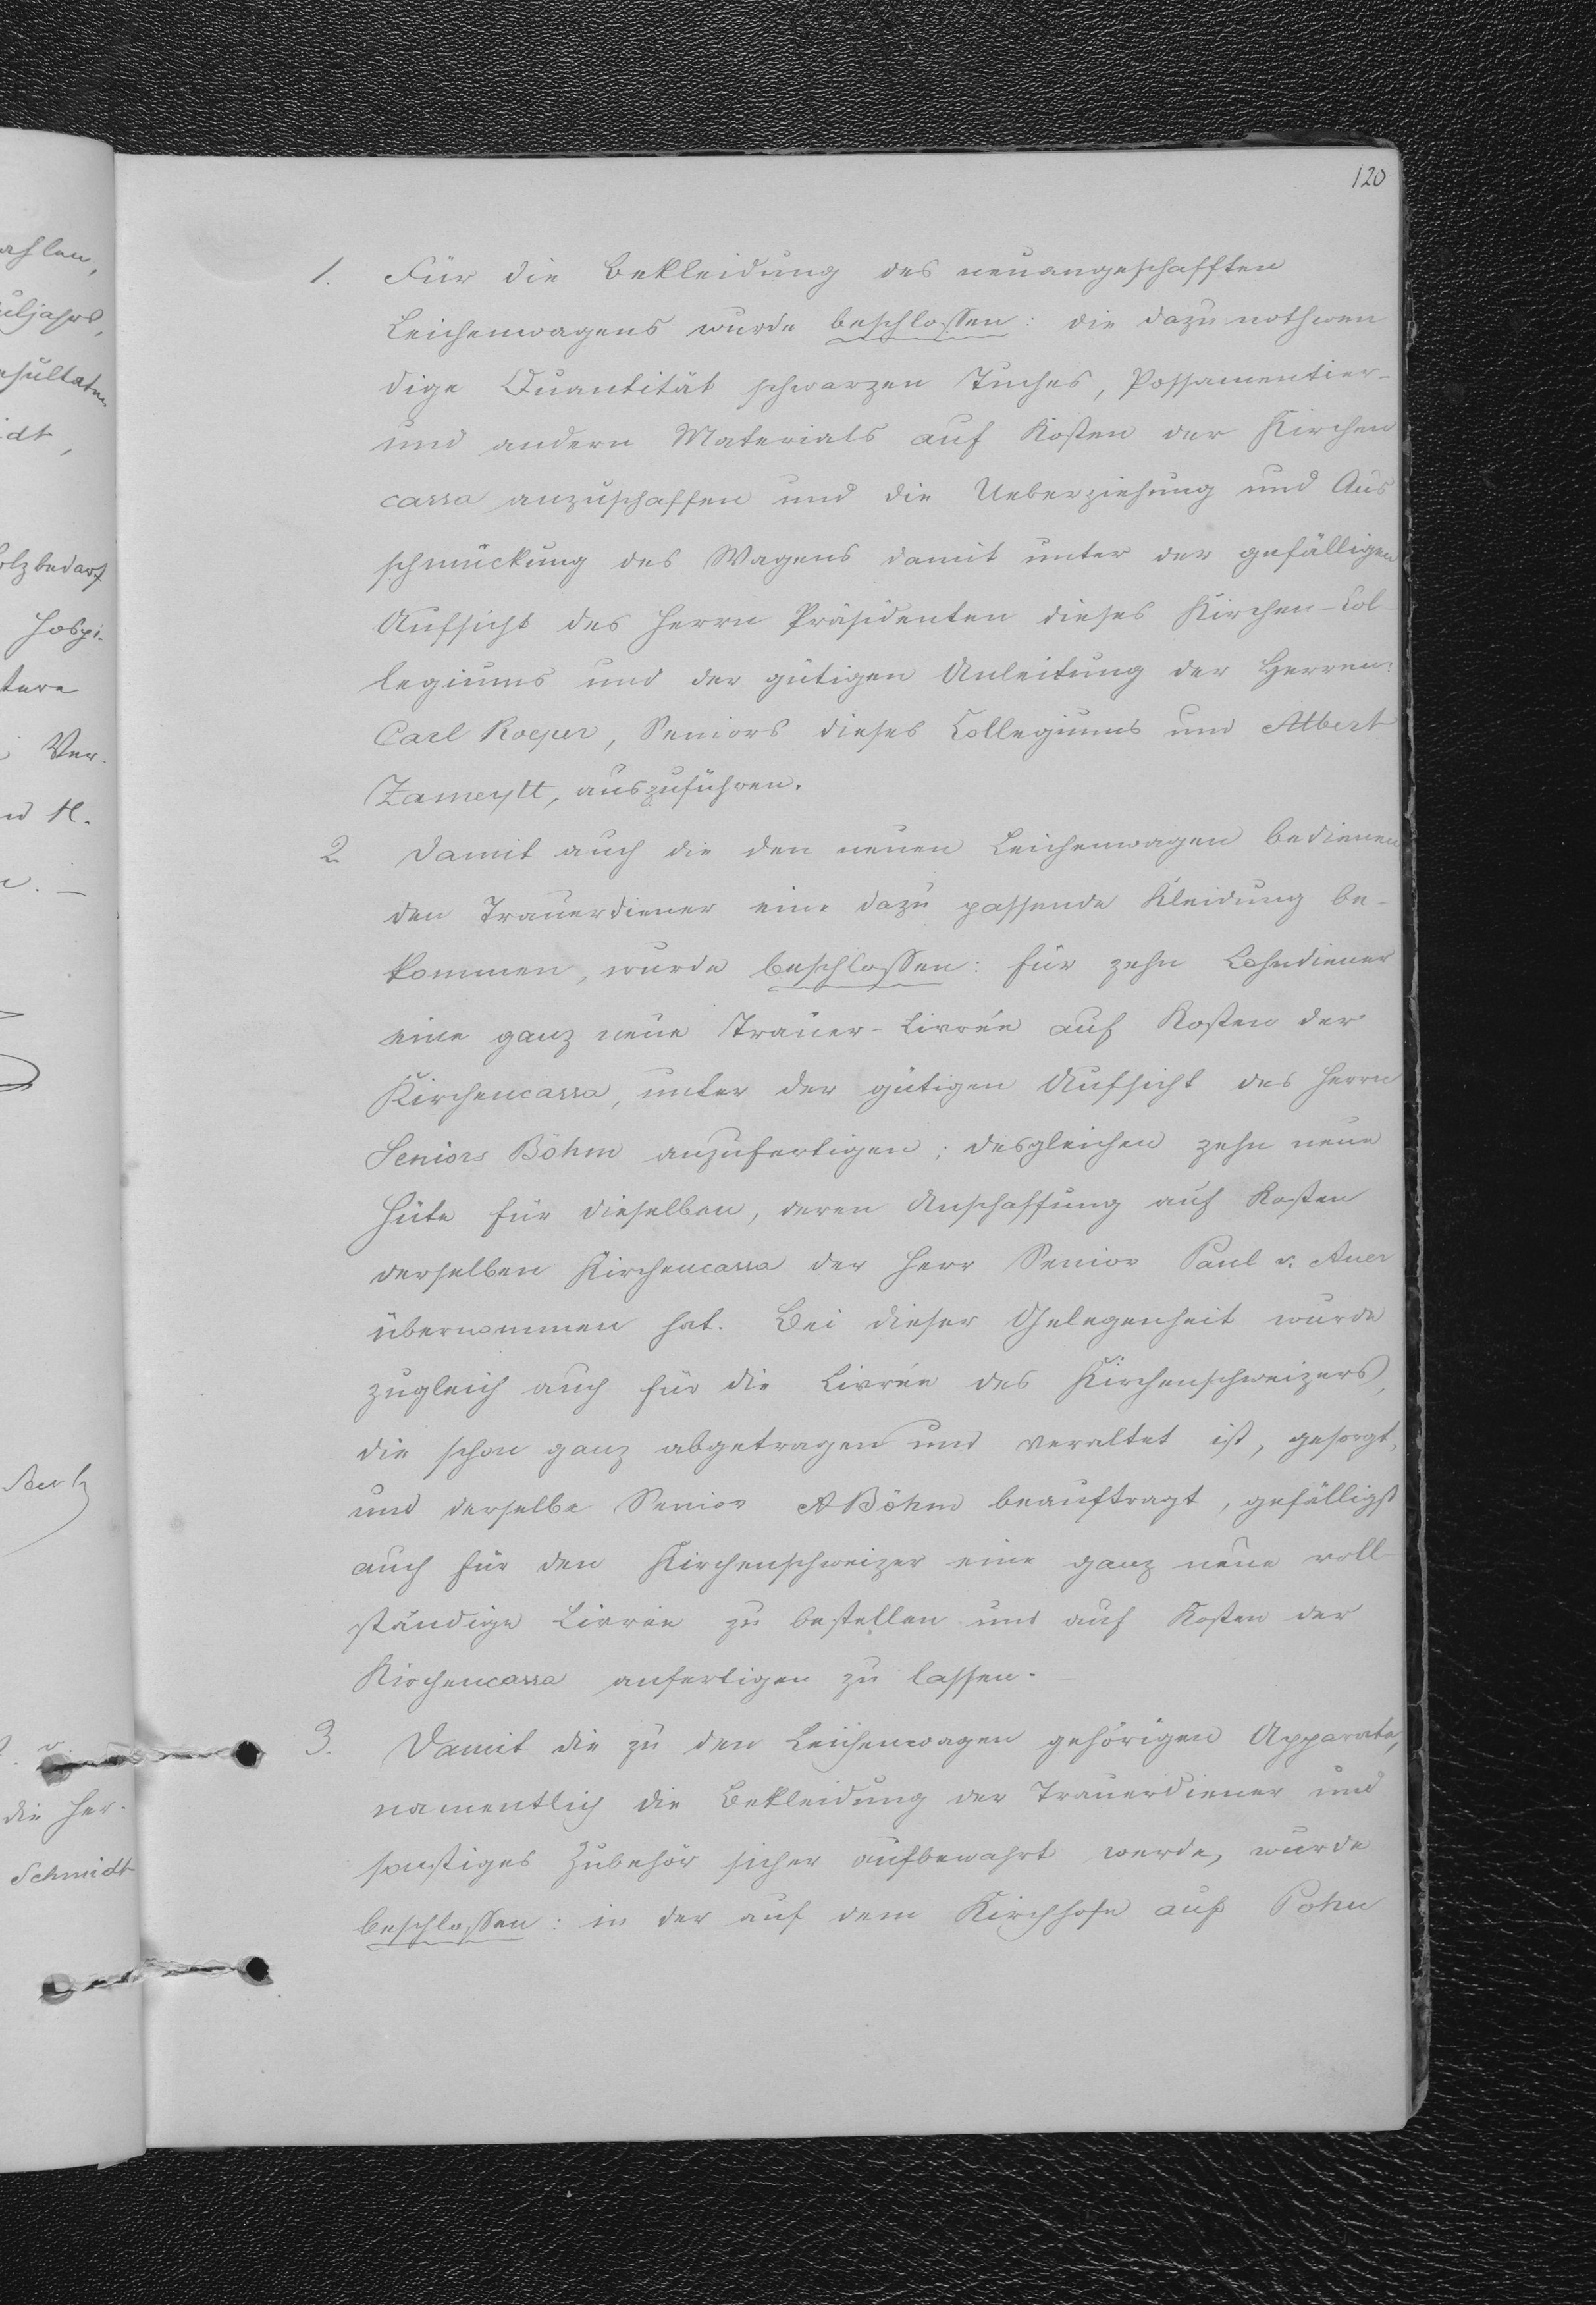 120
1. Für die Bekleidung des neuangeschafften
Leichenwagens wurde beschlossen: die dazu nothwen
dige Quantität schwarzen Tuches, Possamentier-
und andern Materials auf Kosten der Kirchen
cassa anzuschaffen und die Ueberziehung und Aus
schmückung des Wagens damit unter der gefälligen
Aufsicht des Herrn Präsidenten dieses Kirchen-Col-
legiums und der gütigen Anleitung der Herren:
Carl Roeper, Seniors dieses Collegiums und Albert
Zameytt, auszuführen.
2 Damit auch die den neuen Leichenwagen bedienen
den Trauerdiener eine dazu passende Kleidung be-
kommen, wurde beschlossen: für zehn Lohndiener
eine ganz neue Trauer-Livrée auf Kosten der
Kirchencassa, unter der gütigen Aufsicht des Herrn
Seniors Böhm anzufertigen; desgleichen zehn neue
Hüte für dieselben, deren Anschaffung auf Kosten
derselben Kirchencassa der Herr Senior Paul v. Auer
übernommen hat. Bei dieser Gelegenheit wurde
zugleich auch für die Livrée des Kirchenschweizers,
die schon ganz abgetragen und veraltet ist, gesorgt,
und derselbe Senior A Böhm beauftragt, gefälligst
auch für den Kirchenschweizer eine ganz neue voll
ständige Livrée zu bestellen und auf Kosten der
Kirchencassa anfertigen zu lassen.
3. Damit die zu den Leichenwagen gehörigen Apparate,
namentlich die Bekleidung der Trauerdiener und
sonstiges Zubehör sicher aufbewahrt werde, wurde
beschlossen: in der auf dem Kirchhofe auf Pohu
Hospi-
Ver-
die Her-
Schmidt